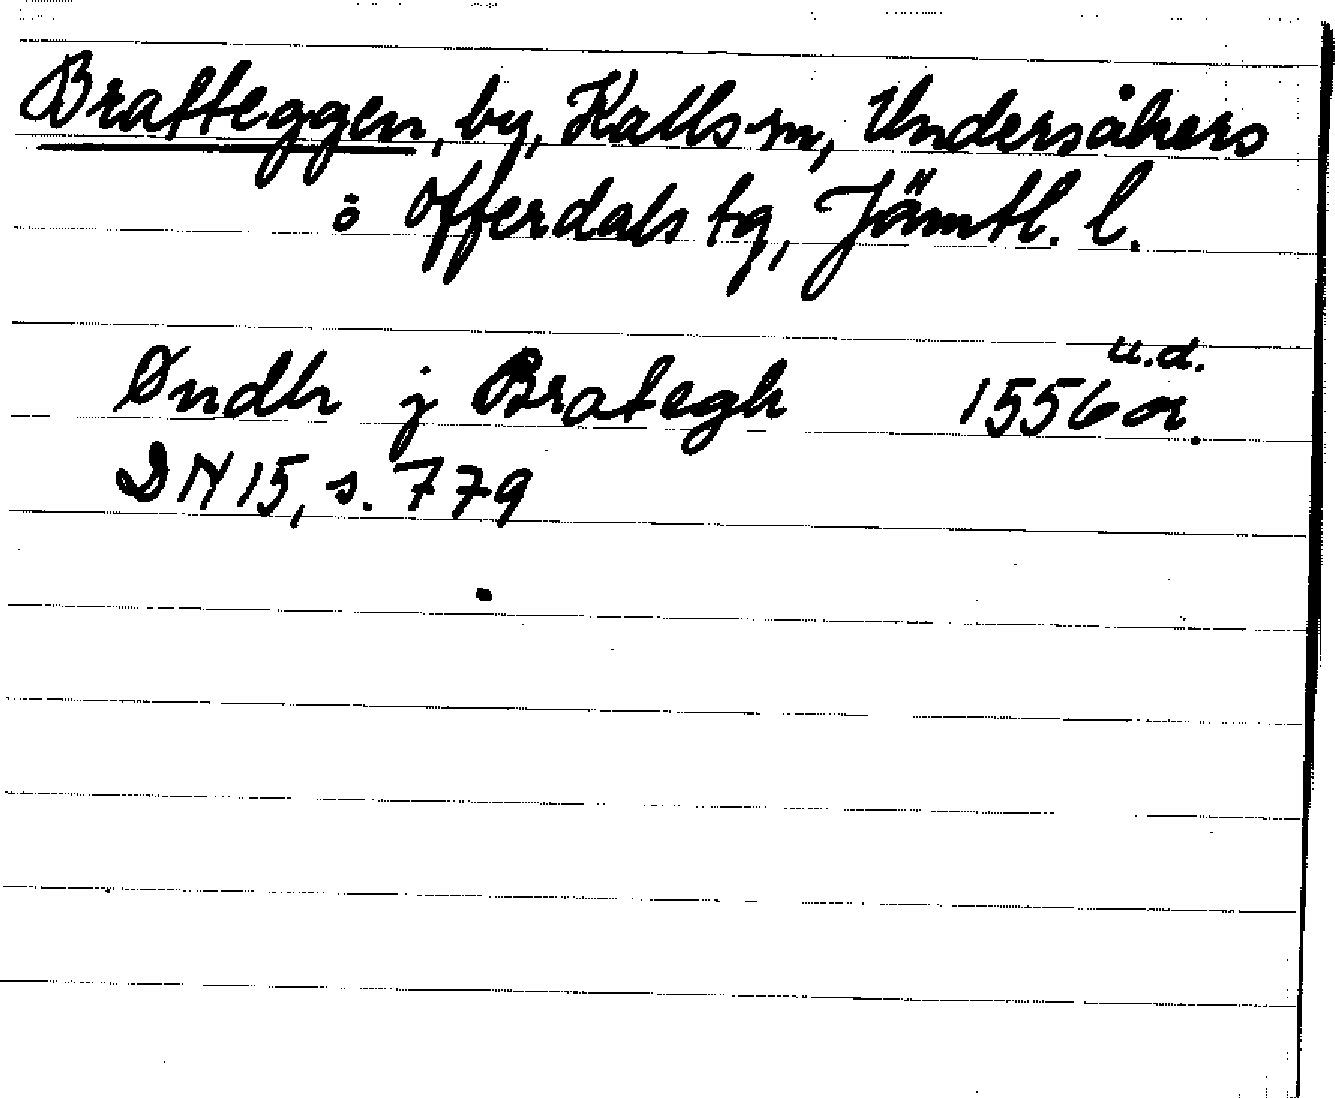 Bratteggen, by, Kalls sn, Undersåkers
o Offerdals tg, Jämtl. l.
Øndh j Brategh 1556 or. u.d.
DN 15, s. 779